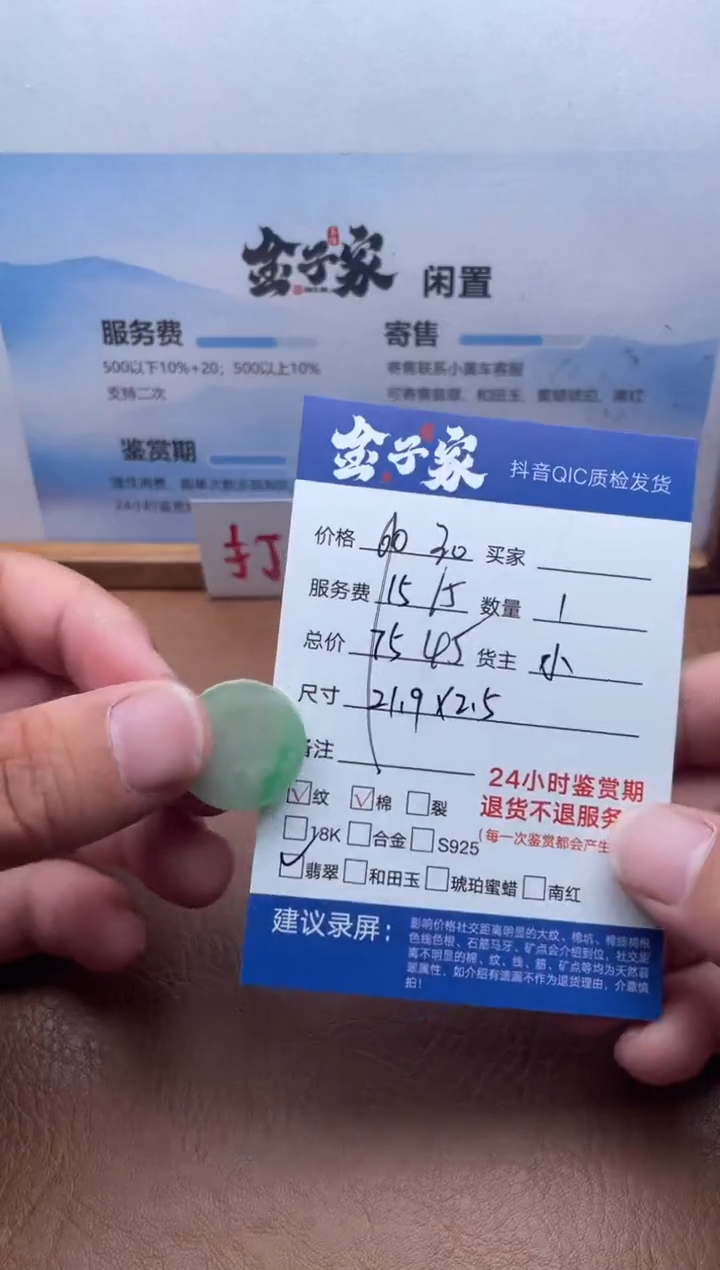 金子家 闲置
服务费
500以下10%+20；500以上10%
支持二次
寄售
寄售联系小黄车客服
可寄售翡翠、和田玉、蜜蜡琥珀、南红
鉴赏期
打
金子家 抖音QIC质检发货
价格 60 30 买家
服务费 15 15 数量 1
总价 75 45 货主 小
尺寸 21.9X2.5
备注
24小时鉴赏期
退货不退服务
(每一次鉴赏都会产生
纹 棉 裂
18K 合金 S925
翡翠 和田玉 琥珀蜜蜡 南红
建议录屏：
影响价格社交距离明显的大纹、棉坑、
色线色根、石筋马牙、矿点会介绍到位，社交距
离不明显的棉、纹、线、筋、矿点等均为天然翡
翠属性，如介绍有遗漏不作为退货理由，介意慎
拍！